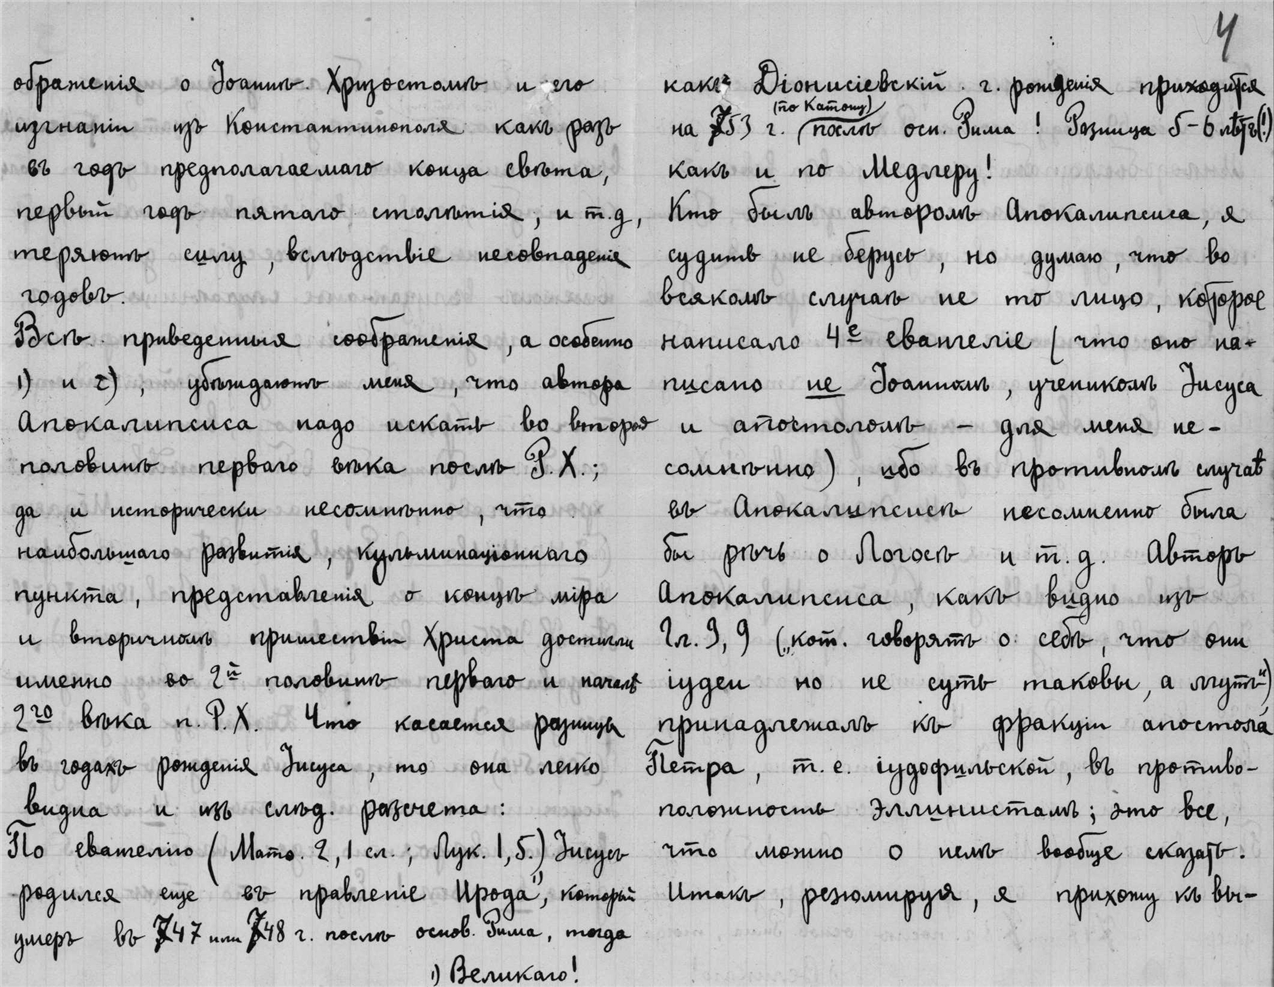 ображенія о Іоаннѣ Хризостомѣ и его
изгнаніи изъ Константинополя какъ разъ
въ годъ предполагаемаго конца свѣта,
первый годъ пятаго столѣтія, и т.д,
теряютъ силу, вслѣдствіе несовпаденія
годовъ.
Всѣ приведенныя соображенія, а особенно
1) и 2), убѣждаютъ меня, что автора
Апокалипсиса надо искать во второй
половинѣ перваго вѣка послѣ Р.Х.;
да и исторически несомнѣнно, что
наибольшаго развитія, кульминаціоннаго
пункта, представленія о концѣ міра
и вторичномъ пришествіи Христа достигли
именно во 2й половинѣ перваго и началѣ
2го вѣка п. Р.Х. Что касается разницы
въ годахъ рожденія Іисуса, то она легко
видна и изъ слѣд. разсчета:
По евангелію (Матѳ. 2, 1 сл.; Лук. 1, 5.) Іисусъ
родился еще въ правленіе Ирода¹), который
умеръ въ 747 или 748 г. послѣ основ. Рима, тогда
1) Великаго!
4
какъ Діонисіевскій г. рожденія приходится
на 753 г. (по Катону) послѣ осн. Рима! Разница 5-6 лѣтъ(!)
какъ и по Медлеру!
Кто былъ авторомъ Апокалипсиса, я
судить не берусь, но думаю, что во
всякомъ случаѣ не то лицо, которое
написало 4е евангеліе (что оно на-
писано не Іоанномъ, ученикомъ Іисуса
и апостоломъ – для меня не-
сомнѣнно), ибо въ противномъ случаѣ
въ Апокалипсисѣ несомненно была
бы рѣчь о Логосѣ и т.д. Авторъ
Апокалипсиса, какъ видно изъ
2л. 9, 9 („кот. говорятъ о себѣ, что они
іудеи но не суть таковы, а лгутъ")
принадлежалъ къ фракціи апостола
Петра, т.е. іудофильской, въ противо-
положность эллинистамъ; это все,
что можно о немъ вообще сказать.
Итакъ, резюмируя, я прихожу къ вы-